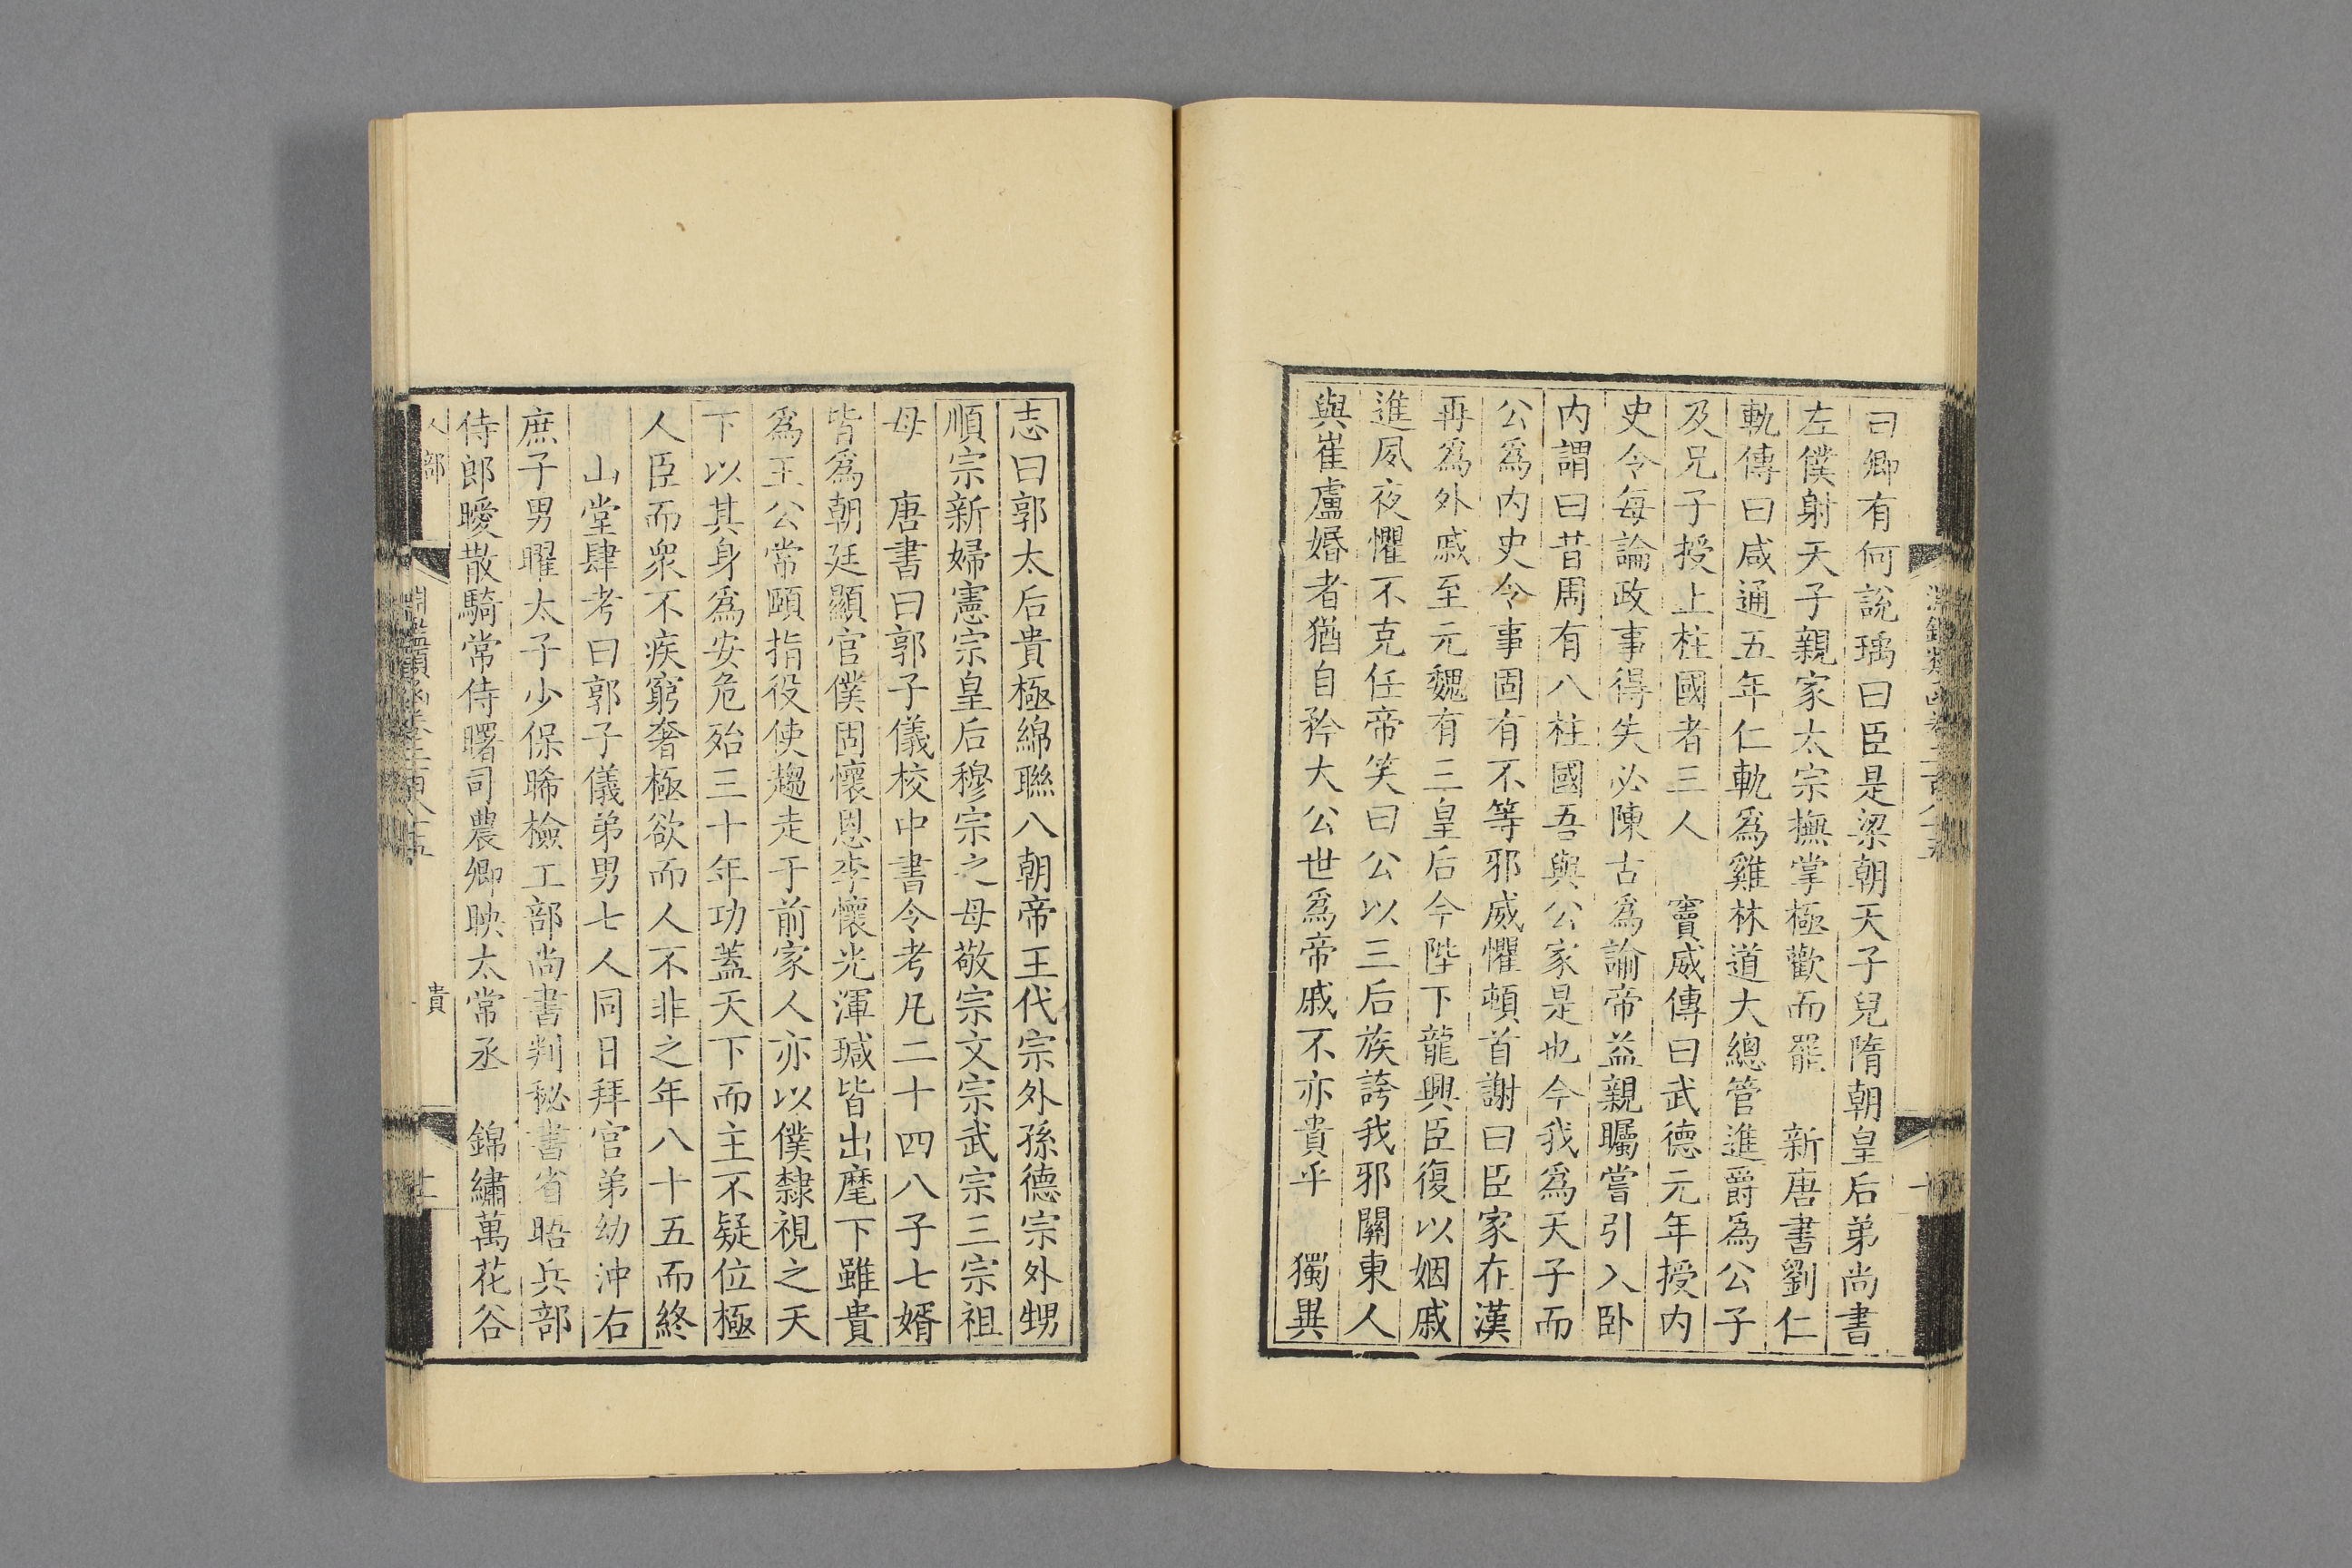 曰卿有何說瑀曰臣是梁朝天子兒隋朝皇后弟尚書
左僕射天子親家太宗撫掌極歡而罷　新唐書劉仁
軌傳曰咸通五年仁軌爲雞林道大總管進爵爲公子
及兄子授上柱國者三人　竇威傳曰武德元年授内
史令每論政事得失必陳古爲諭帝益親矚嘗引入卧
内謂曰昔周有八柱國吾與公家是也今我爲天子而
公爲内史令事固有不等邪威懼頓首謝曰臣家在漢
再爲外戚至元魏有三皇后今陛下龍興臣復以姻戚
進夙夜懼不克任帝笑曰公以三后族誇我邪關東人
與崔盧婚者猶自矜大公世爲帝戚不亦貴乎　獨異
志曰郭太后貴極綿聯八朝帝王代宗外孫德宗外甥
順宗新婦憲宗皇后穆宗之母敬宗文宗武宗三宗祖
母　唐書曰郭子儀校中書令考凡二十四八子七婿
皆爲朝廷顯官僕固懷恩李懷光渾瑊皆出麾下雖貴
爲王公常頤指役使趨走于前家人亦以僕隸視之天
下以其身爲安危殆三十年功蓋天下而主不疑位極
人臣而衆不疾窮奢極欲而人不非之年八十五而終
山堂肆考曰郭子儀弟男七人同日拜官弟幼沖右
庶子男曜太子少保晞檢工部尚書判秘書省晤兵部
侍郎曖散騎常侍曙司農卿映太常丞　錦繡萬花谷
人部
貴